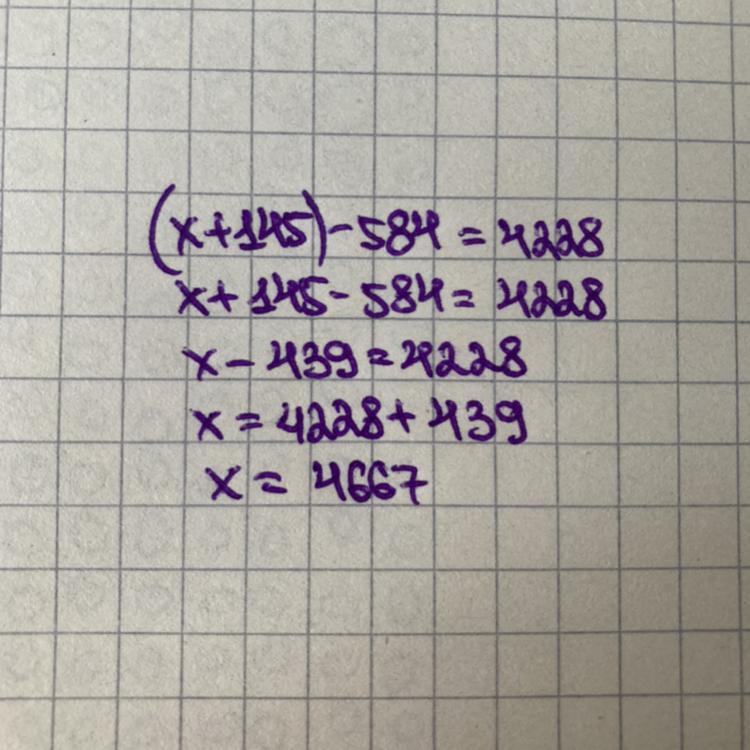 (x+145)-584=4228
x+145-584=4228
x-439=4228
x=4228+439
x=4667